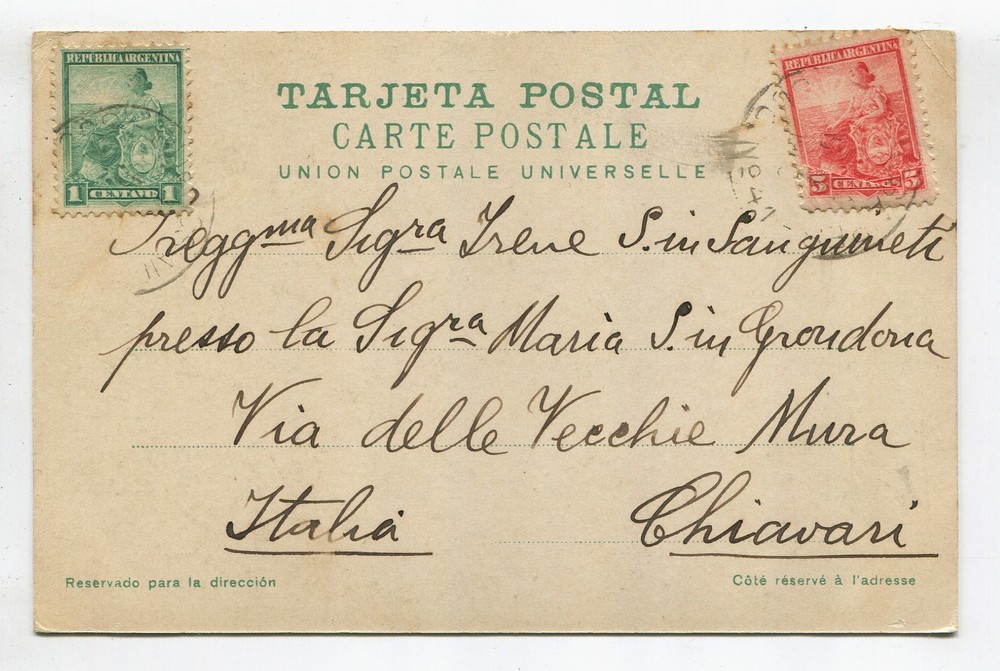 REPUBLICA ARGENTINA
1 CENTAVO 1
REPUBLICA ARGENTINA
5 CENTAVOS 5
TARJETA POSTAL
CARTE POSTALE
UNION POSTALE UNIVERSELLE
Preggma Sigra Irene S. in Sanguineti
presso la Sigra Maria S. in Grondona
Via delle Vecchie Mura
Italia Chiavari
Reservado para la dirección
Côté réservé à l'adresse